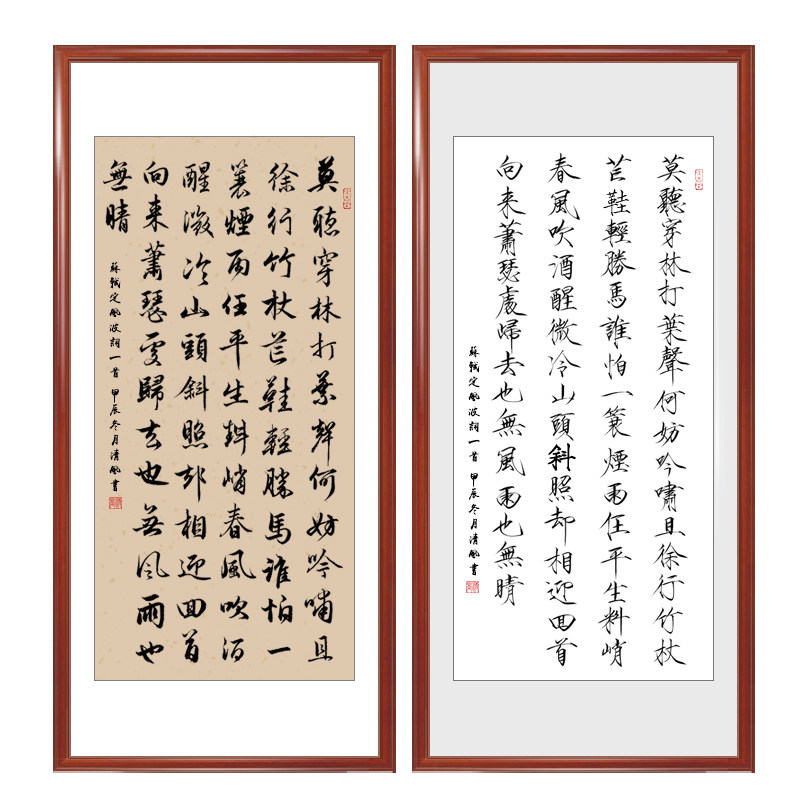 莫聽穿林打葉聲何妨吟嘯且
徐行竹杖芒鞋輕勝馬誰怕一
蓑煙雨任平生料峭春風吹酒
醒微冷山頭斜照却相迎回首
向来蕭瑟處歸去也無風雨也
無晴
蘇軾定風波詞一首 甲辰冬月清風書
莫聽穿林打葉聲何妨吟嘯且徐行竹杖
芒鞋輕勝馬誰怕一蓑煙雨任平生料峭
春風吹酒醒微冷山頭斜照却相迎回首
向来蕭瑟處歸去也無風雨也無晴
蘇軾定風波詞一首 甲辰冬月清風書